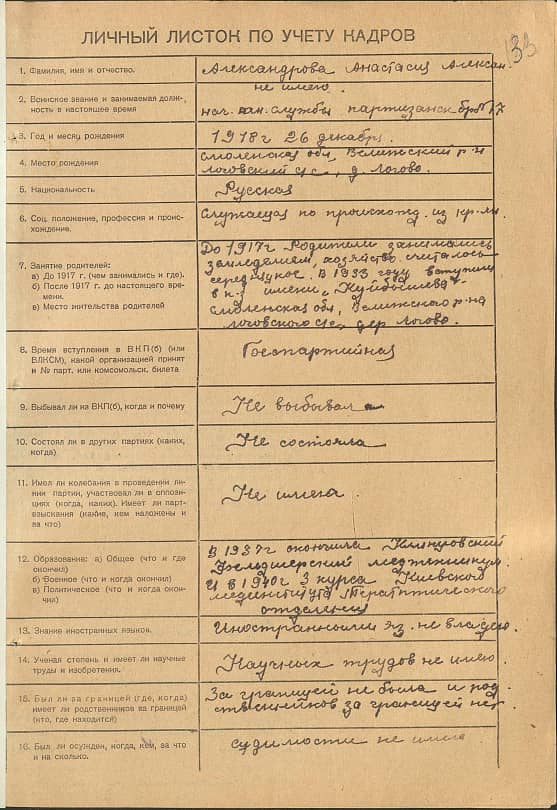 133
ЛИЧНЫЙ ЛИСТОК ПО УЧЕТУ КАДРОВ
1. Фамилия, имя и отчество.
Александрова Анастасия Алексан.
2. Воинское звание и занимаемая долж-
ность в настоящее время
не имею.
нач. сан. службы партизанск бр №17
3. Год и месяц рождения
1918г 26 декабр.
4. Место рождения
Смоленская обл, Велижский р-н
Логовский с/с, д. Логово.
5. Национальность
Русская
6. Соц. положение, профессия и проис-
хождение.
Служащая по происхожд. из кр-ян.
7. Занятие родителей:
а) До 1917 г. (чем занимались и где).
б) После 1917 г. до настоящего вре-
мени.
в) Место жительства родителей
До 1917г Родители занимались
земледелием, хозяйство считалось
середняцкое. В 1933 году вступили
в к-з имени „Куйбышева"
Смоленская обл, Велижского р-на
Логовского с/с, дер Логово.
8. Время вступления в ВКП(б) (или
ВЛКСМ), какой организацией принят
и № парт. или комсомольск. билета
Беспартийная
9. Выбывал ли из ВКП(б), когда и почему
Не выбывал
10. Состоял ли в других партиях (каких,
когда)
Не состояла
11. Имел ли колебания в проведении ли-
нии партии, участвовал ли в оппози-
циях (когда, каких). Имеет ли парт-
взыскания (какие, кем наложены и
за что)
Не имела.
12. Образование: а) Общее (что и где
окончил)
б) Военное (что и когда окончил)
в) Политическое (что и когда окон-
чил)
В 1937г окончила Клинцовский
медтехникум.
И в 1940г 3 курса Киевского
мединститута
отделения
13. Знание иностранных языков.
Иностранными яз. не владею.
14. Ученая степень и имеет ли научные
труды и изобретения.
Научных трудов не имею.
15. Был ли за границей (где, когда)
имеет ли родственников за границей
(кто, где находится)
За границей не была и род-
ственников за границей нет.
16. Был ли осужден, когда, кем, за что
и на сколько.
судимости не имею